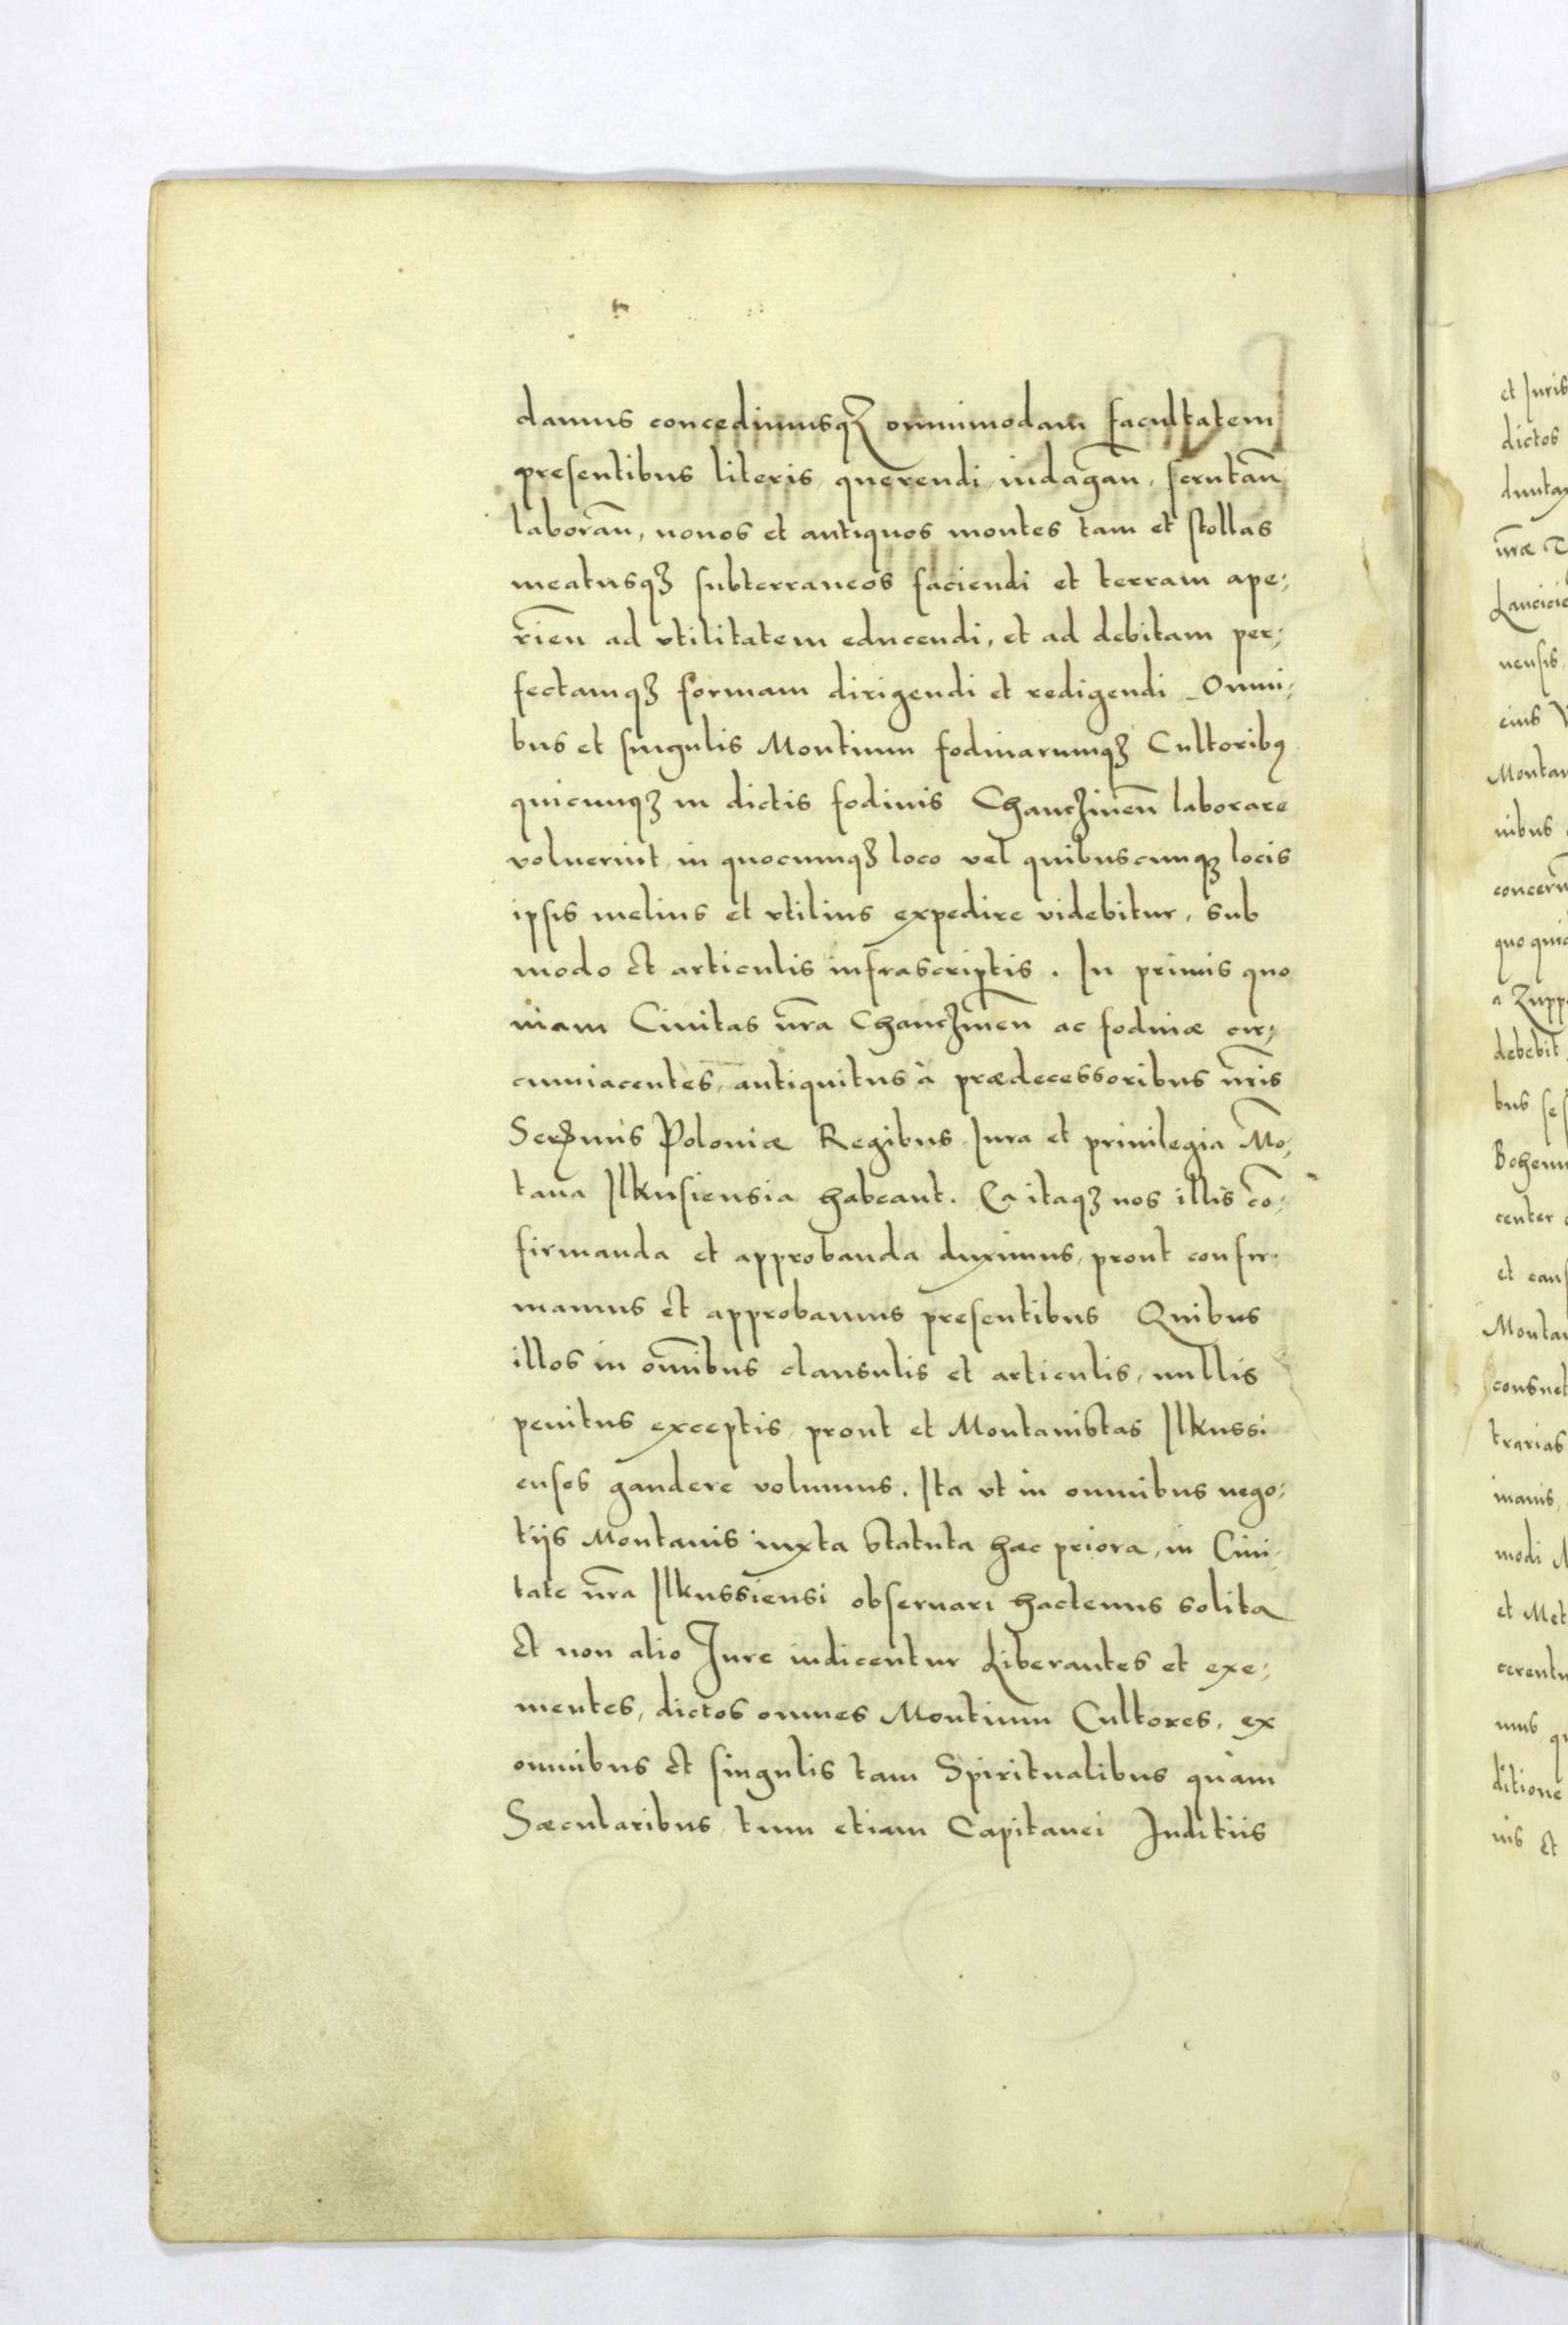 damus concedimusqꝫ omnimodam facultatem
presentibus literis, querendi, indagan̄, scrutan̄
laboran̄, nouos et antiquos montes tam et stollas
meatusqꝫ subterraneos faciendi et terram ape:
rien̄ ad vtilitatem educendi, et ad debitam per:
fectamqꝫ formam dirigendi et redigendi Omni:
bus et singulis Montium fodinarumqꝫ Cultoribꝰ
quicunqꝫ in dictis fodinis Chanczinen̄ laborare
voluerint, in quocumqꝫ loco vel quibuscumqꝫ locis
ipsis melius et vtilius expedire videbitur, sub
modo et articulis infrascriptis. In primis quo
niam Ciuitas nr̄a Chanczinen̄ ac fodinæ cir:
cumiacentes, antiquitus à prædecessoribus nr̄is
Serꝫmis Poloniæ Regibus Iura et priuilegia Mō:
tana Ilkusiensia habeant. Ea itaqꝫ nos illis cō:
firmanda et approbanda duximus, prout confir:
mamus et approbamus presentibus Quibus
illos in om̄ibus clausulis et articulis, nullis
penitus exceptis, prout et Montanistas Ilkussi
enses gaudere volumus. Ita vt in omnibus nego:
tijs Montanis iuxta Statuta hæc priora, in Ciui:
tate nr̄a Ilkussiensi obseruari hactenus solita
et non alio Jure iudicentur Liberantes et exi:
mentes, dictos omnes Montium Cultores, ex
omnibus et singulis tam Spiritualibus quàm
Sæcularibus, tum etiam Capitanei Juditiis
et Iuris
dictos
nr̄æ
nensis
eius
nibus
debebit
bus
center
et
et
ditione
nis et